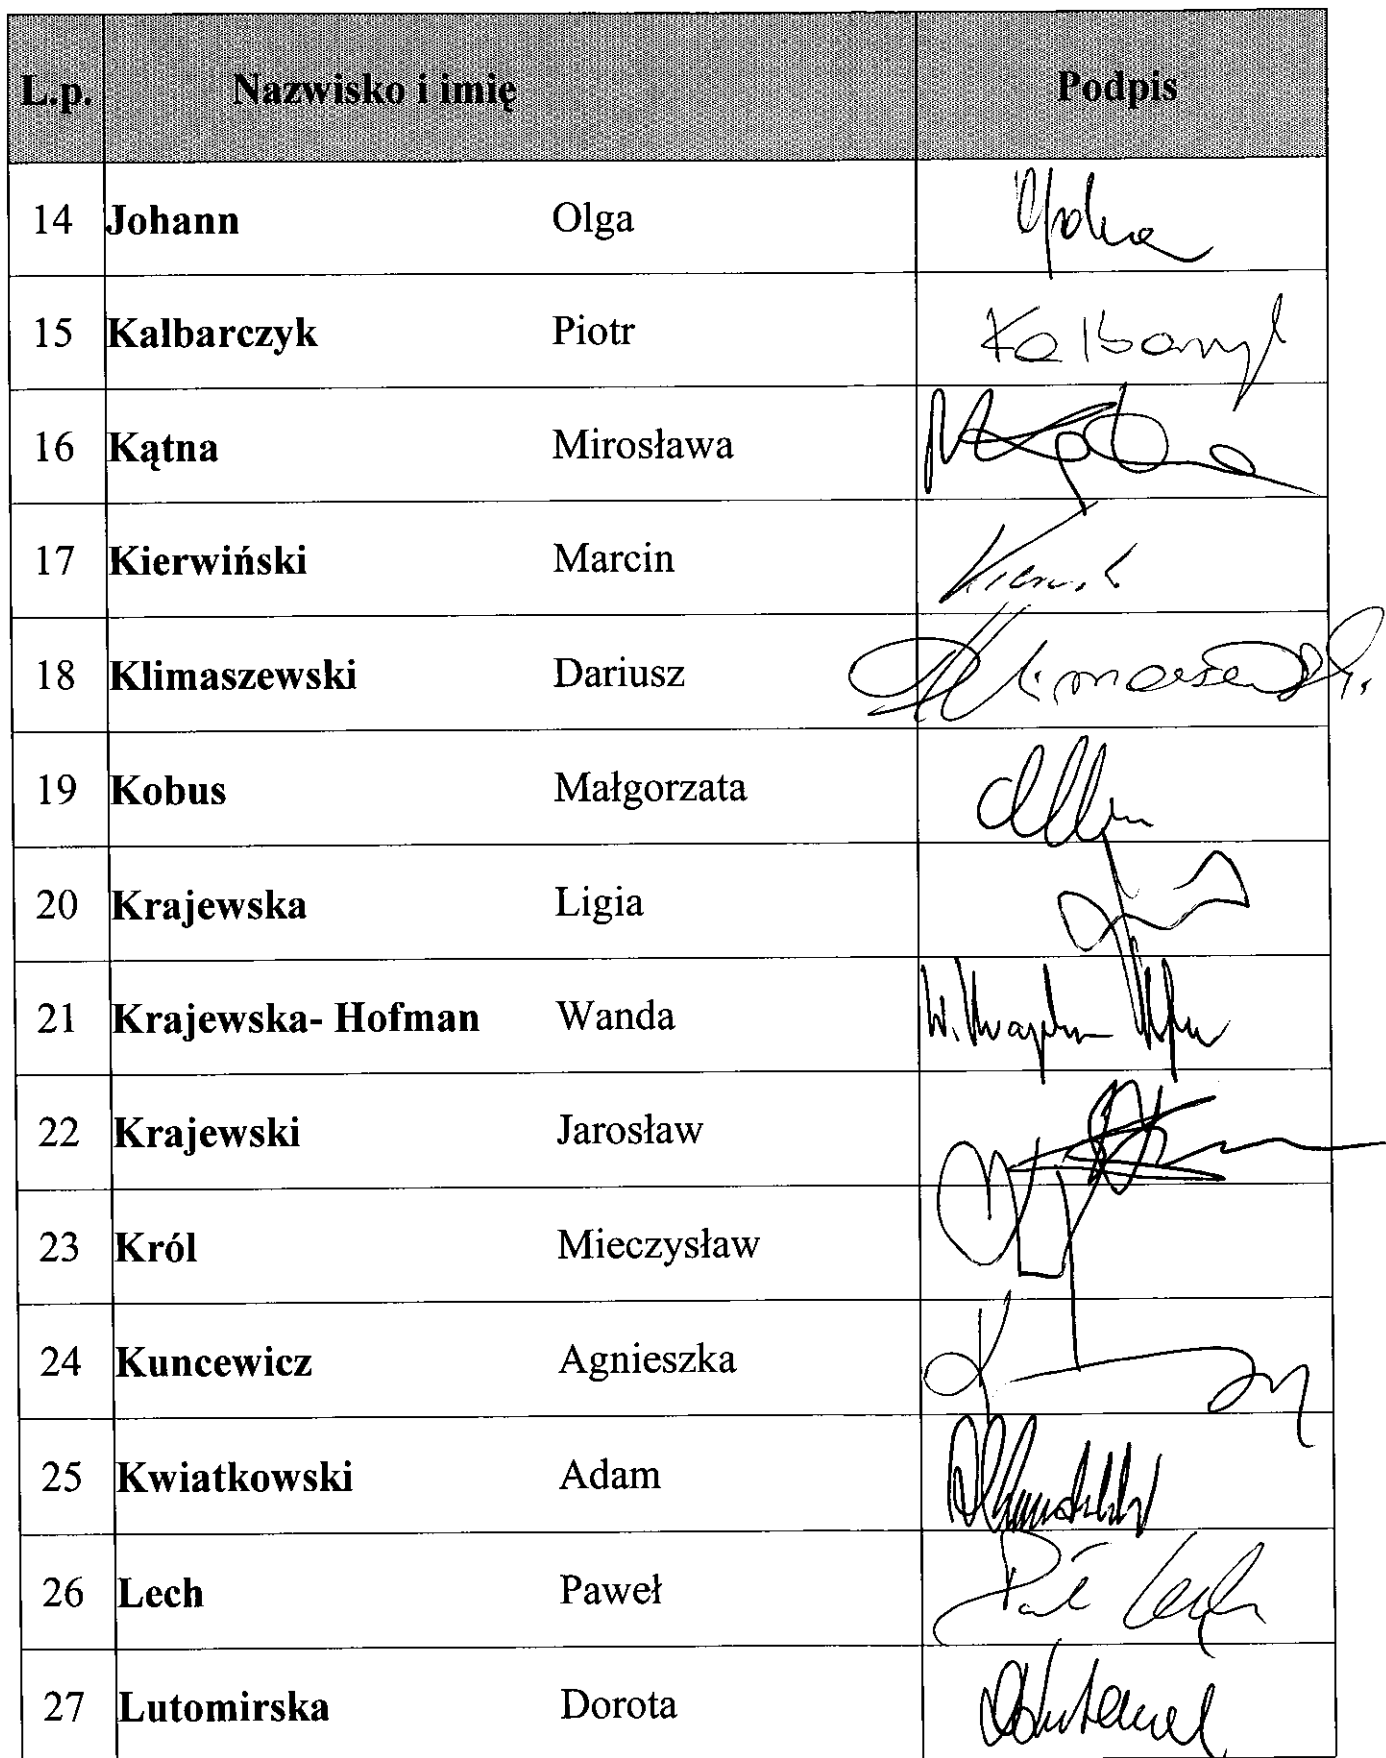 L.p. Nazwisko i imię Podpis
14 Johann Olga
15 Kalbarczyk Piotr
16 Kątna Mirosława
17 Kierwiński Marcin
18 Klimaszewski Dariusz
19 Kobus Małgorzata
20 Krajewska Ligia
21 Krajewska- Hofman Wanda
22 Krajewski Jarosław
23 Król Mieczysław
24 Kuncewicz Agnieszka
25 Kwiatkowski Adam
26 Lech Paweł
27 Lutomirska Dorota